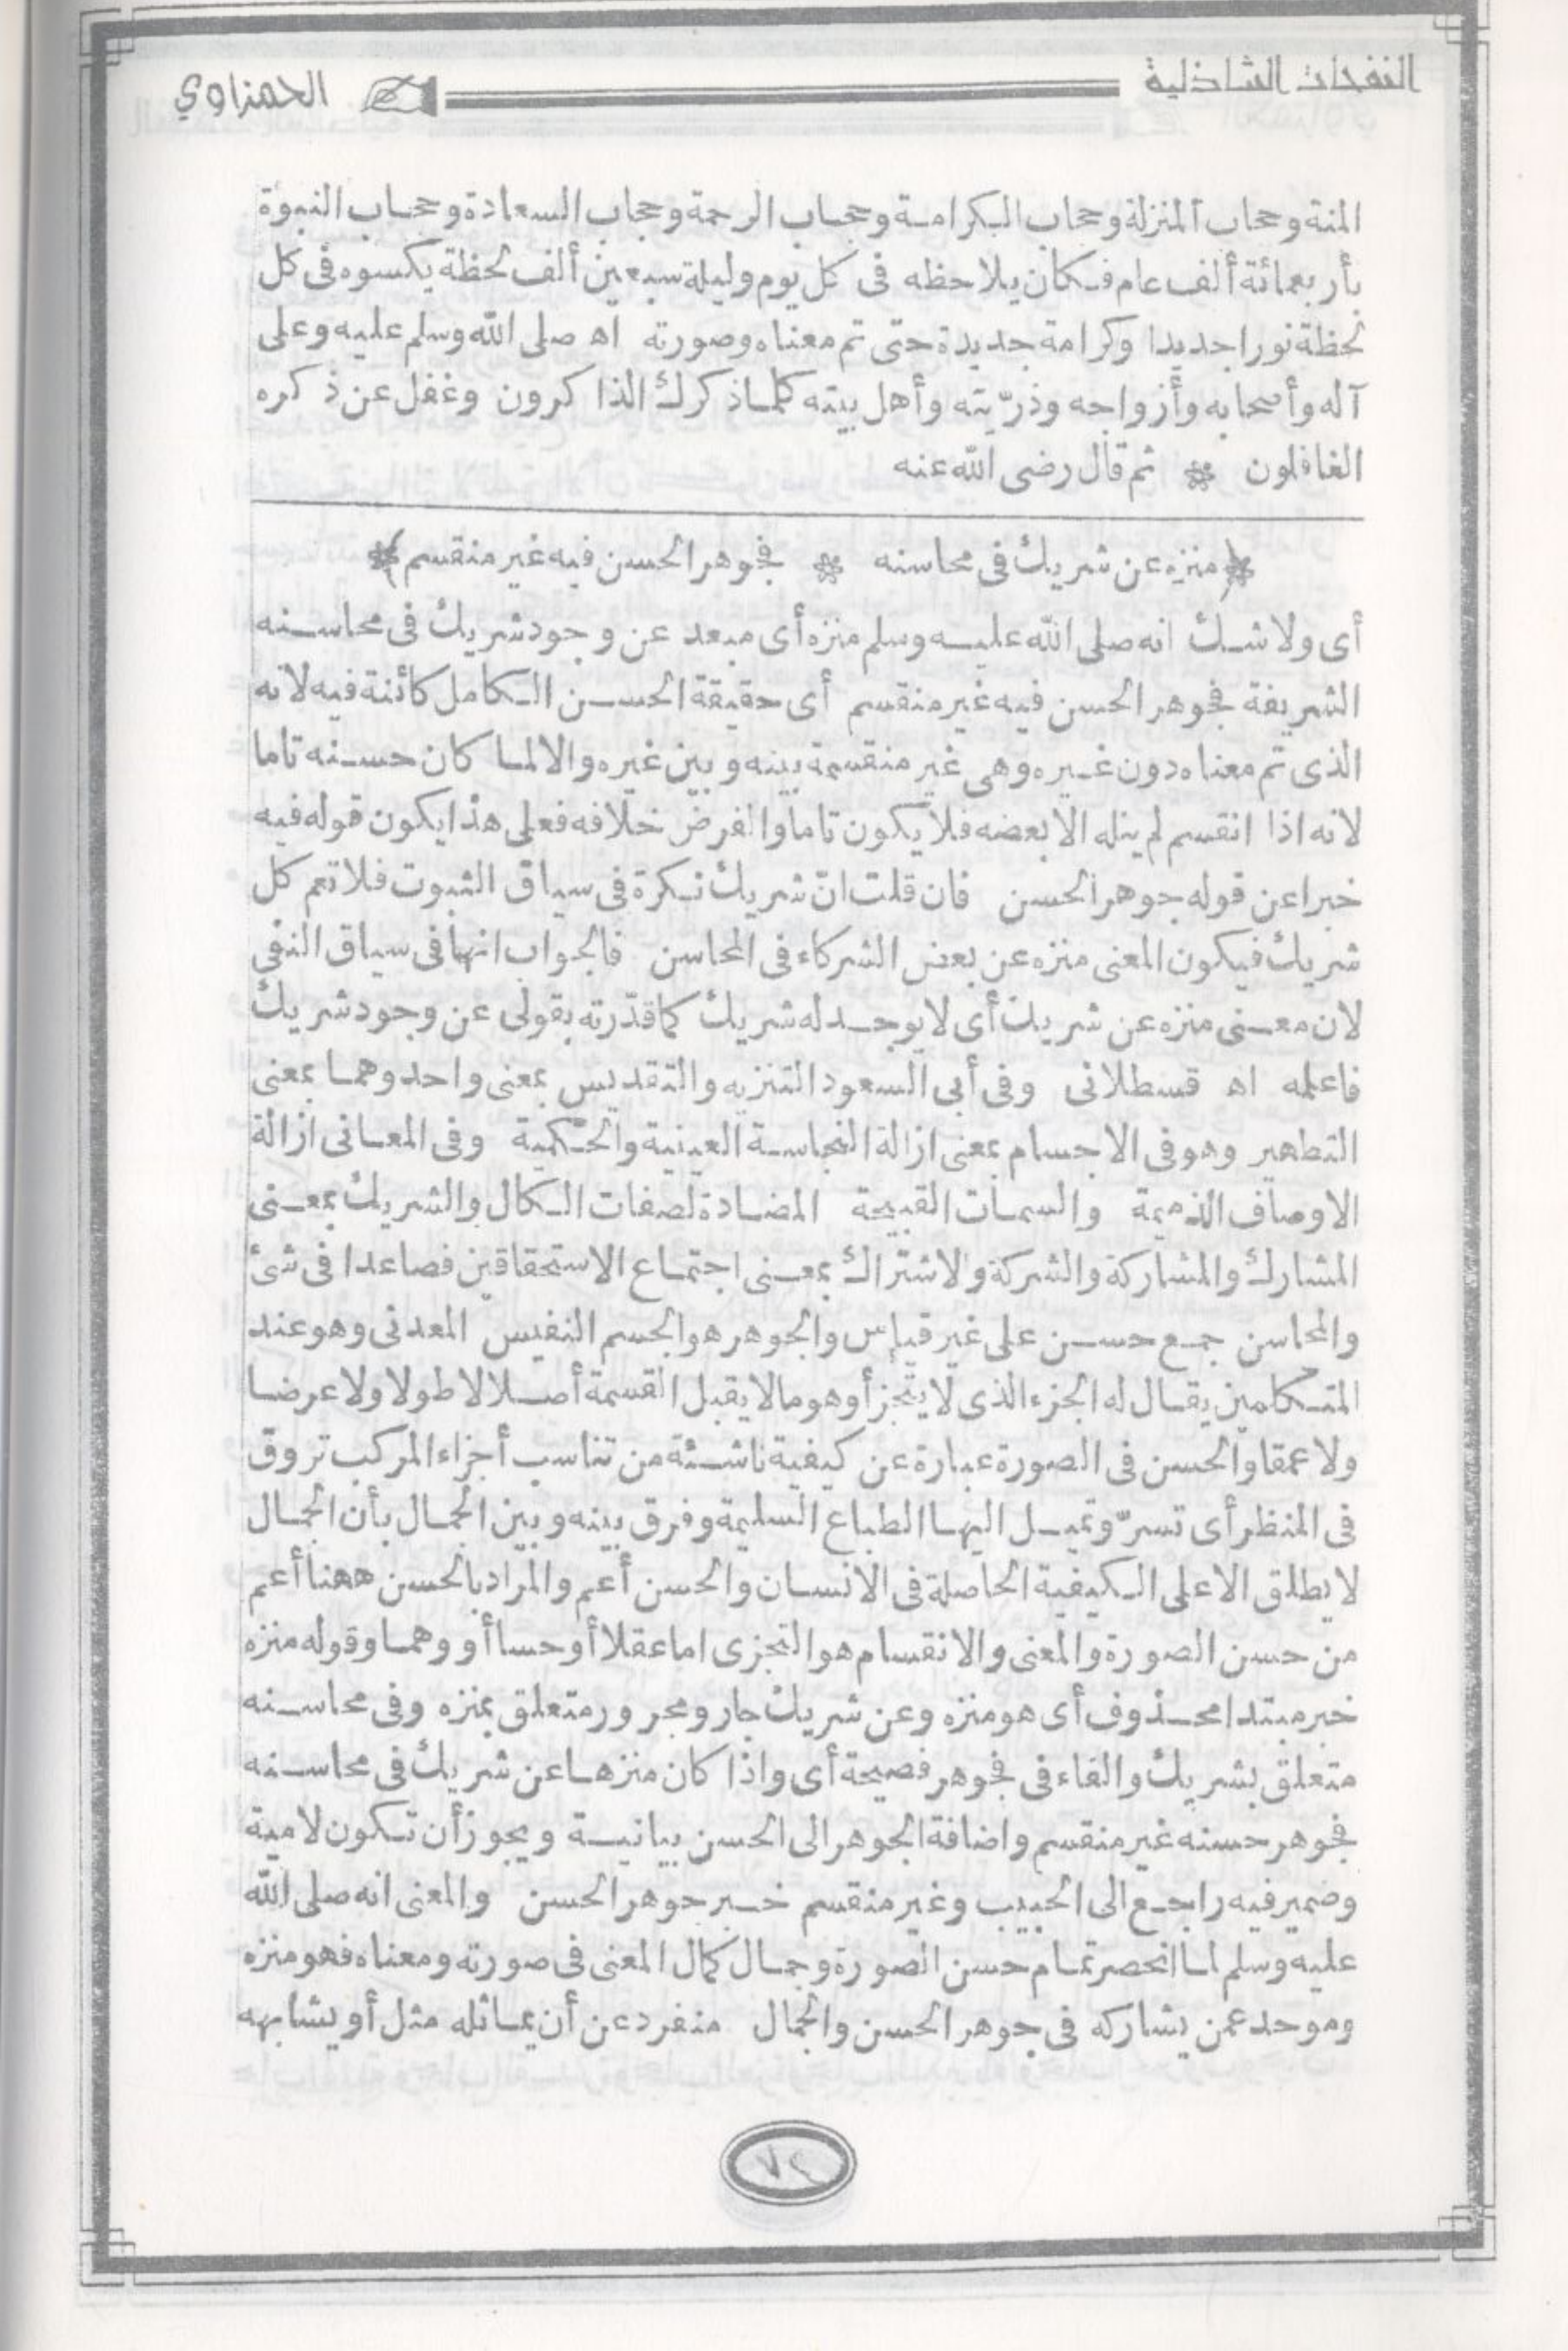 النفحات الشاذلية
الحمزاوي
المنة وحجاب المنزلة وحجاب الكرامة وحجاب الرحمة وحجاب السعادة وحجاب النبوة
بأربعمائة ألف عام فكان يلاحظه فى كل يوم وليلة سبعين ألف لحظة يكسوه فى كل
لحظة نورا جديدا وكرامة جديدة حتى تم معناه وصورته اه صلى الله وسلم عليه وعلى
آله وأصحابه وأزواجه وذرّيته وأهل بيته كلما ذكرك الذاكرون وغفل عن ذكره
الغافلون * ثم قال رضى الله عنه
﴿منزه عن شريك فى محاسنه * فجوهر الحسن فيه غير منقسم﴾
أى ولا شك انه صلى الله عليه وسلم منزه أى مبعد عن وجود شريك فى محاسنه
الشريفة فجوهر الحسن فيه غير منقسم أى حقيقة الحسن الكامل كائنة فيه لانه
الذى تم معناه دون غيره وهى غير منقسمة بينه وبين غيره والا لما كان حسنه تاما
لانه اذا انقسم لم ينله الا بعضه فلا يكون تاما والفرض خلافه فعلى هذا يكون قوله فيه
خبرا عن قوله جوهر الحسن فان قلت انّ شريك نكرة فى سياق الثبوت فلا تعم كل
شريك فيكون المعنى منزه عن بعض الشركاء فى المحاسن فالجواب انها فى سياق النفى
لان معنى منزه عن شريك أى لا يوجد له شريك كما قدّرته بقولى عن وجود شريك
فاعلمه اه قسطلانى وفى أبى السعود التنزيه والتقديس بمعنى واحد وهما بمعنى
التطهير وهو فى الاجسام بمعنى ازالة النجاسة العينية والحكمية وفى المعانى ازالة
الاوصاف الذميمة والسمات القبيحة المضادة لصفات الكمال والشريك بمعنى
المشارك والمشاركة والشركة والاشتراك بمعنى اجتماع الاستحقاقين فصاعدا فى شئ
والمحاسن جمع حسن على غير قياس والجوهر هو الجسم النفيس المعدنى وهو عند
المتكلمين يقال له الجزء الذى لا يتجزأ وهو ما لا يقبل القسمة أصلا لا طولا ولا عرضا
ولا عمقا والحسن فى الصورة عبارة عن كيفية ناشئة من تناسب أجزاء المركب تروق
فى المنظر أى تسرّ وتميل اليها الطباع السليمة وفرق بينه وبين الجمال بأن الجمال
لا يطلق الا على الكيفية الحاصلة فى الانسان والحسن أعم والمراد بالحسن ههنا أعم
من حسن الصورة والمعنى والانقسام هو التجزى اما عقلا أو حسا أو وهما وقوله منزه
خبر مبتدا محذوف أى هو منزه وعن شريك جار ومجرور متعلق بمنزه وفى محاسنه
متعلق بشريك والفاء فى فجوهر فصيحة أى واذا كان منزها عن شريك فى محاسنه
فجوهر حسنه غير منقسم واضافة الجوهر الى الحسن بيانية ويجوز أن تكون لامية
وضمير فيه راجع الى الحبيب وغير منقسم خبر جوهر الحسن والمعنى انه صلى الله
عليه وسلم لما انحصر تمام حسن الصورة وجمال كمال المعنى فى صورته ومعناه فهو منزه
وموحد عمن يشاركه فى جوهر الحسن والجمال منفرد عن أن يماثله مثل أو يشابهه